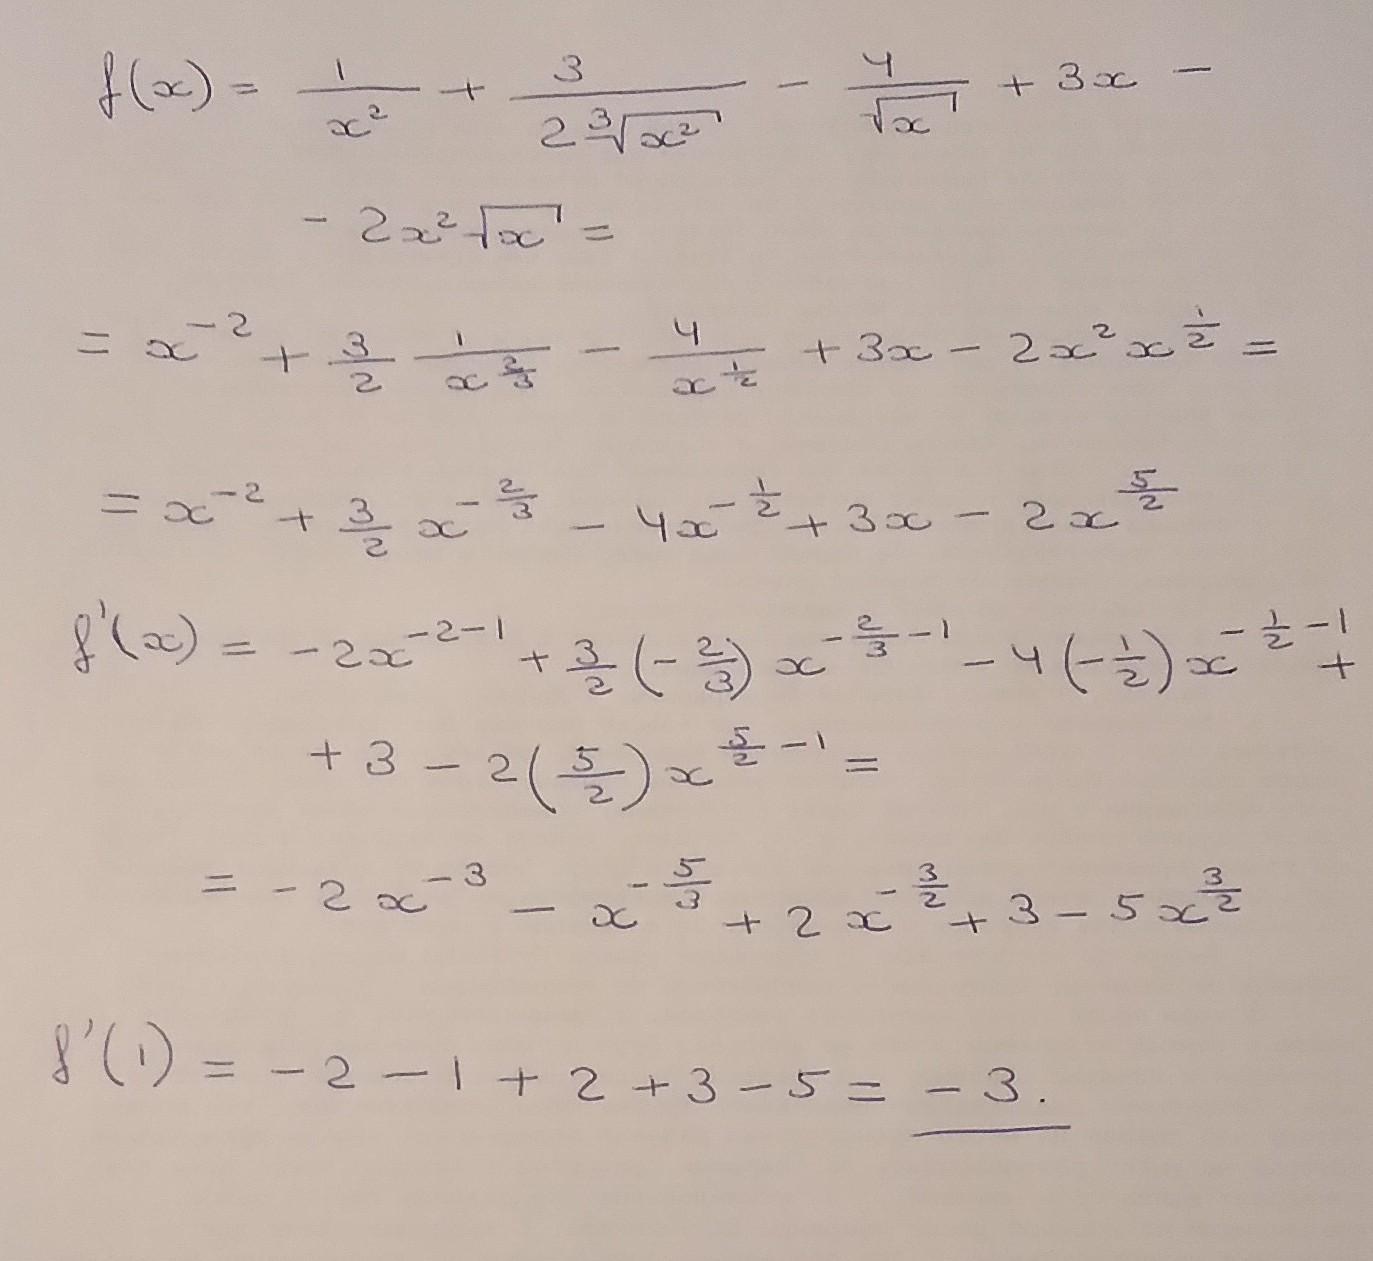 f(x) = 1/x² + 3/(2∛(x²)) − 4/√x + 3x −
− 2x²√x =
= x⁻² + 3/2 · 1/x^(2/3) − 4/x^(1/2) + 3x − 2x² x^(1/2) =
= x⁻² + 3/2 x^(−2/3) − 4x^(−1/2) + 3x − 2x^(5/2)
f'(x) = −2x^(−2−1) + 3/2 (−2/3) x^(−2/3 −1) − 4(−1/2) x^(−1/2 −1) +
+ 3 − 2(5/2) x^(5/2 −1) =
= −2x⁻³ − x^(−5/3) + 2x^(−3/2) + 3 − 5x^(3/2)
f'(1) = −2 − 1 + 2 + 3 − 5 = −3.